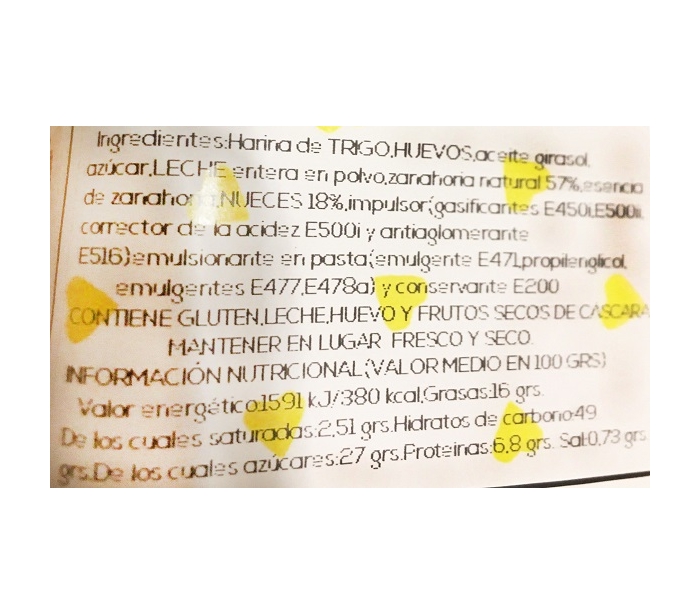 Ingredientes:Harina de TRIGO,HUEVOS,aceite girasol,
azúcar,LECHE entera en polvo,zanahoria natural 57%,esencia
de zanahoria,NUECES 18%,impulsor(gasificantes E450i,E500ii,
corrector de la acidez E500i y antiaglomerante
E516)emulsionante en pasta(emulgente E471,propilenglicol,
emulgentes E477,E478a) y conservante E200
CONTIENE GLUTEN,LECHE,HUEVO Y FRUTOS SECOS DE CASCARA
MANTENER EN LUGAR FRESCO Y SECO.
INFORMACIÓN NUTRICIONAL(VALOR MEDIO EN 100 GRS)
Valor energético:1591 kJ/380 kcal,Grasas:16 grs.
De los cuales saturadas:2,51 grs.Hidratos de carbono:49
grs.De los cuales azúcares:27 grs.Proteinas:6,8 grs. Sal:0,73 grs.